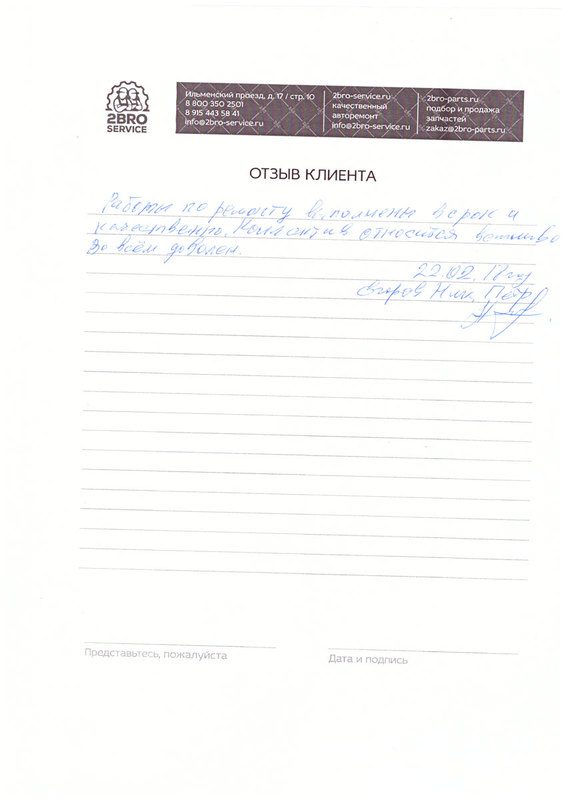 2BRO
SERVICE
Ильменский проезд, д. 17 / стр. 10
8 800 350 2501
8 915 443 58 41
info@2bro-service.ru
2bro-service.ru
качественный
авторемонт
info@2bro-service.ru
2bro-parts.ru
подбор и продажа
запчастей
zakaz@2bro-parts.ru
ОТЗЫВ КЛИЕНТА
Работы по ремонту выполнены в срок и
качественно. Коллектив относится вежливо
Во всём доволен.
22.02.17 год
Егоров Ник. Петр
Представьтесь, пожалуйста
Дата и подпись